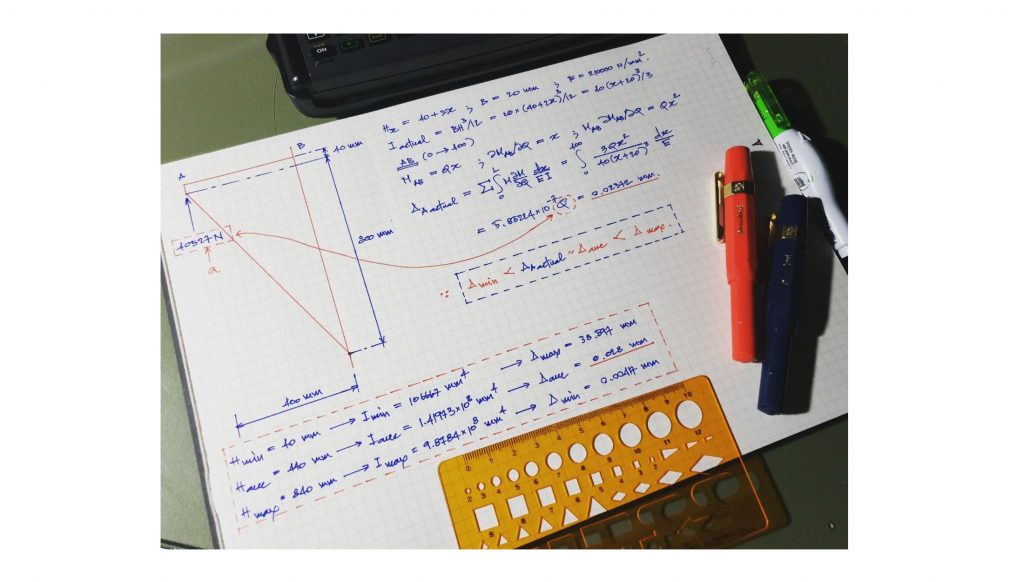 Hx = 40+2x ; B = 20 mm ; E = 210000 N/mm²
I actual = BH³/12 = 20×(40+2x)³/12 = 40(x+20)³/3
AB (0→100)
M AB = Qx ; ∂M AB/∂Q = x ; M AB ∂M AB/∂Q = Qx²
Δ A actual = Σ∫₀ᴸ M ∂M/∂Q dx/EI = ∫₀¹⁰⁰ 3Qx²/40(x+20)³ dx/E
= 5.85224×10⁻⁷ Q = 0.02372 mm.
∴ Δ min < Δ A actual ~ Δ ave < Δ max.
A
B
40 mm
800 mm
40527 N
Q
400 mm
H min = 40 mm → I min = 106667 mm⁴ → Δ max = 38.597 mm
H ave = 440 mm → I ave = 1.41973×10⁸ mm⁴ → Δ ave = 0.028 mm
H max = 840 mm → I max = 9.8784×10⁸ mm⁴ → Δ min = 0.00417 mm
ON
0 1 2 3 4 5 6 7 8 9 10